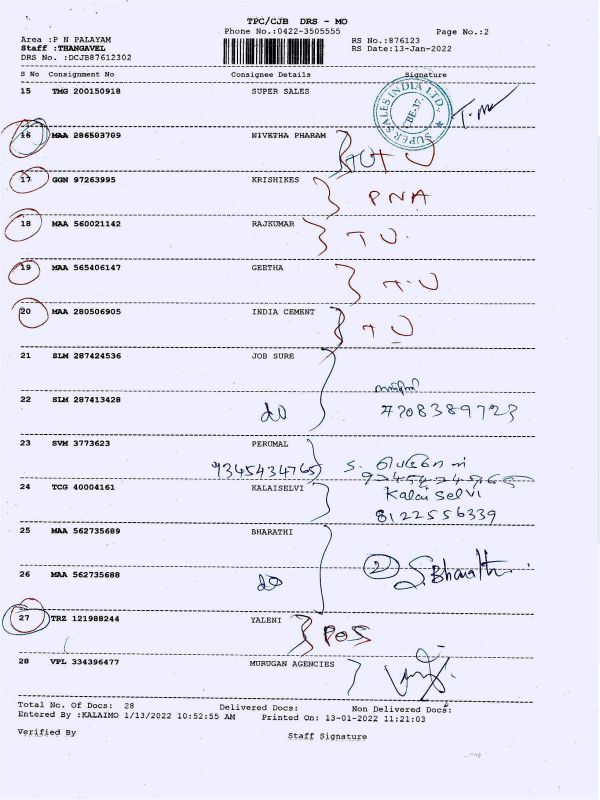 TPC/CJB DRS - MO
Phone No.:0422-3505555
Page No.:2
Area :P N PALAYAM
RS No.:876123
Staff :THANGAVEL
RS Date:13-Jan-2022
DRS No. :DCJB87612302
S No Consignment No Consignee Details Signature
15 TMG 200150918 SUPER SALES
SUPER SALES INDIA LTD.
CBE-37
16 MAA 286503709 NIVETHA PHARAM
17 GGN 97263995 KRISHIKES
PNA
18 MAA 560021142 RAJKUMAR
T U
19 MAA 565406147 GEETHA
T U
20 MAA 280506905 INDIA CEMENT
T U
21 SLM 287424536 JOB SURE
22 SLM 287413428
do 7708389723
23 SVM 3773623 PERUMAL
9345434765
24 TCG 40004161 KALAISELVI
Kalai selvi
8122556339
25 MAA 562735689 BHARATHI
26 MAA 562735688
do 2 S.Bharathi
27 TRZ 121988244 YALENI
POS
28 VPL 334396477 MURUGAN AGENCIES
Total No. Of Docs: 28 Delivered Docs: Non Delivered Docs:
Entered By :KALAIMO 1/13/2022 10:52:55 AM Printed On: 13-01-2022 11:21:03
Verified By Staff Signature